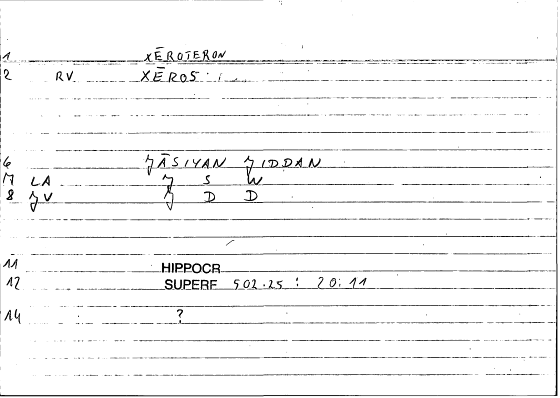 1 XĒROTERON
2 RV XĒROS :
6 ʒĀSIYAN ʒIDDAN
7 LA ʒ S W
8 ʒV ʒ D D
11 HIPPOCR
12 SUPERF 502.25 : 20:11
14 ?